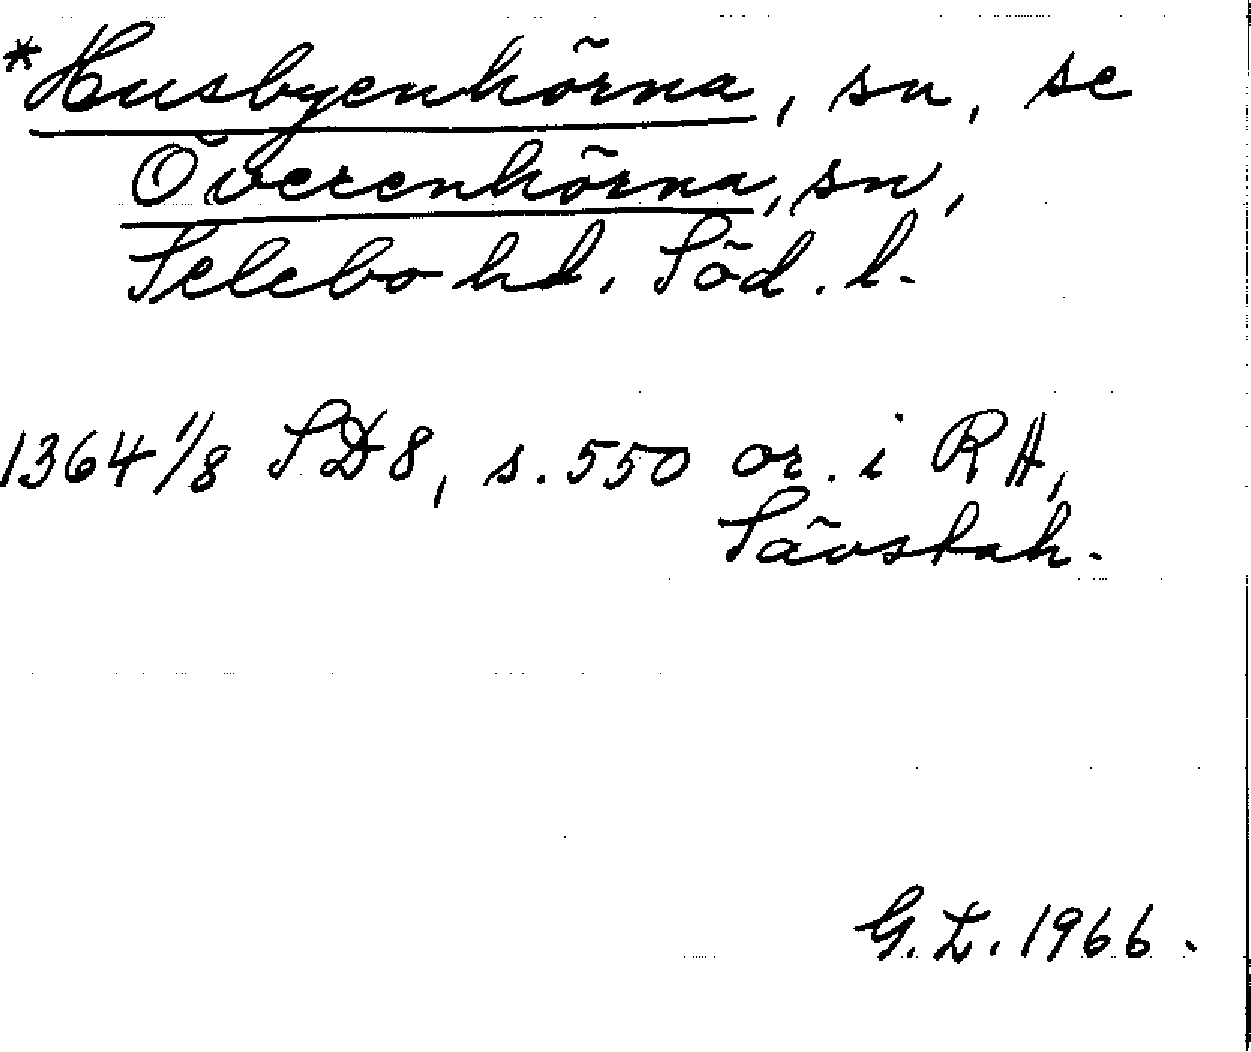 *Husbyenhörna, sn, se
Överenhörna, sn,
Selebo hd. Söd. l.
1364 1/8 SD 8, s. 550 or. i RA,
Sävstah.
G. L. 1966.